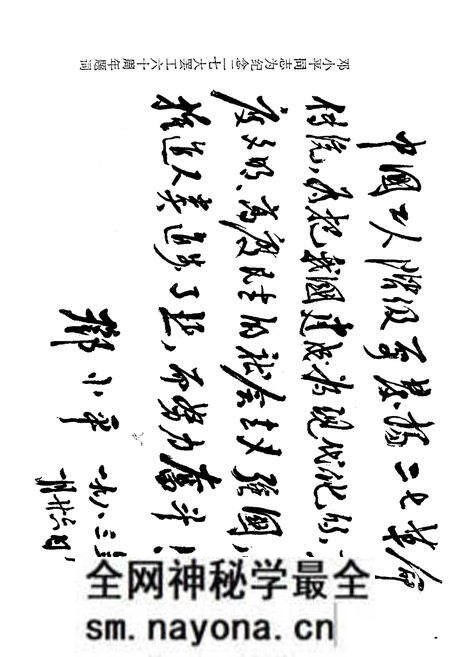 邓小平同志为纪念二七大罢工六十周年题词
中國工人階级要發揚二七革命
传统，为把我國建成为现代化的、
度文明、高度民主的社会主义强國，
推进人类进步事业，而努力奋斗！
鄧小平
一九八三年
一月廿六日
全网神秘学最全
sm.nayona.cn